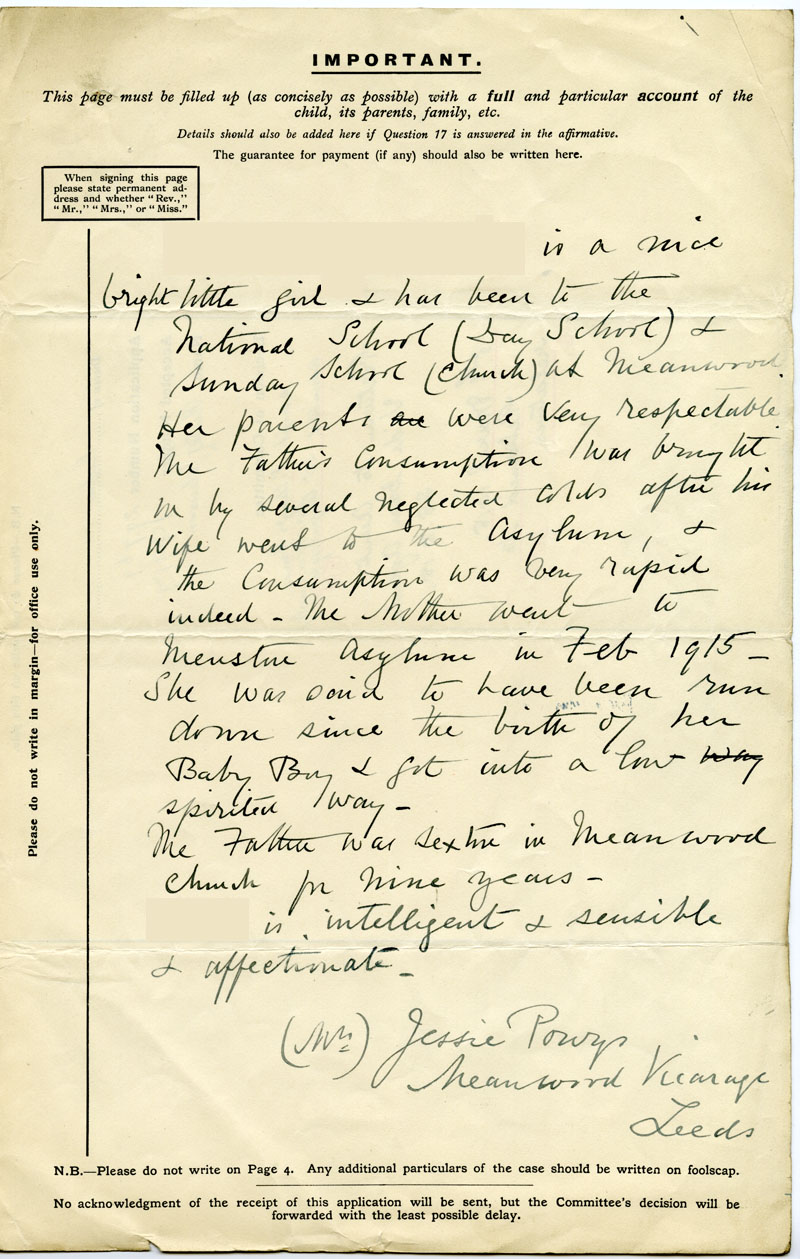 IMPORTANT.
This page must be filled up (as concisely as possible) with a full and particular account of the
child, its parents, family, etc.
Details should also be added here if Question 17 is answered in the affirmative.
The guarantee for payment (if any) should also be written here.
When signing this page
please state permanent ad-
dress and whether "Rev.,"
"Mr.," "Mrs.," or "Miss."
is a nice
bright little girl & has been to the
National School (Day School) &
Sunday School (Church) at Meanwood.
Her parents are were very respectable
The Father's Consumption was brought
on by several neglected colds after his
Wife went to the Asylum, &
the Consumption was very rapid
indeed - The Mother went to
Menston Asylum in Feb 1915 -
She was said to have been run
down since the birth of her
Baby Boy & got into a low way
spirited way -
The Father was Sexton in Meanwood
Church for nine years -
is intelligent & sensible
& affectionate -
(Mrs) Jessie Powys
Meanwood Vicarage
Leeds
Please do not write in margin—for office use only.
N.B.—Please do not write on Page 4. Any additional particulars of the case should be written on foolscap.
No acknowledgment of the receipt of this application will be sent, but the Committee's decision will be
forwarded with the least possible delay.